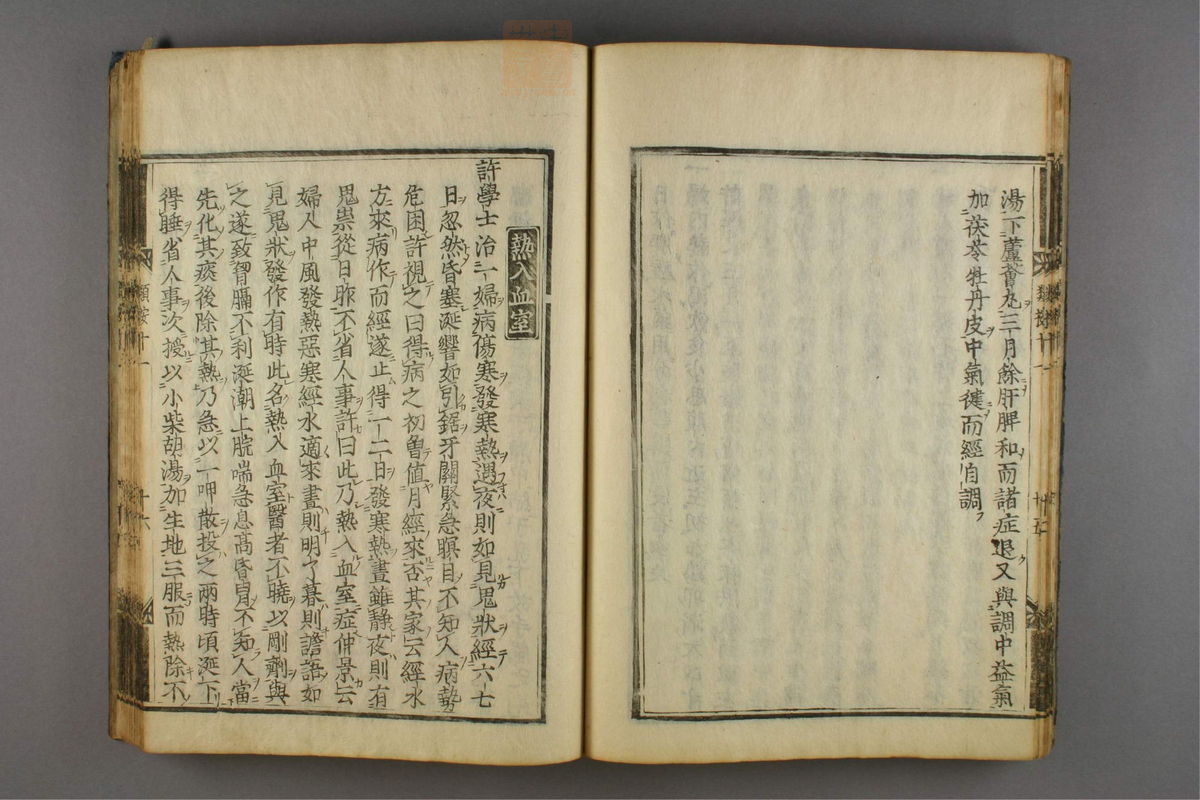 湯下蘆薈丸三月餘肝脾和而諸症退又與調中益氣
加茯苓牡丹皮中氣健而經自調
熱入血室
許學士治一婦病傷寒發寒熱遇夜則如見鬼狀經六七
日忽然昏塞涎響如引鋸牙關緊急瞑目不知人病勢
危困許視之曰得病之初曾值月經來否其家云經水
方來病作而經遂止得一二日發寒熱晝雖靜夜則有
鬼祟從日昨不省人事許曰此乃熱入血室症仲景云
婦人中風發熱惡寒經水適來晝則明了暮則譫語如
見鬼狀發作有時此名熱入血室醫者不曉以剛劑與
之遂致胷膈不利涎潮上脘喘急息高昏冒不知人當
先化其痰後除其熱乃急以一呷散投之兩時頃涎下
得睡省人事次授以小柴胡湯加生地三服而熱除不